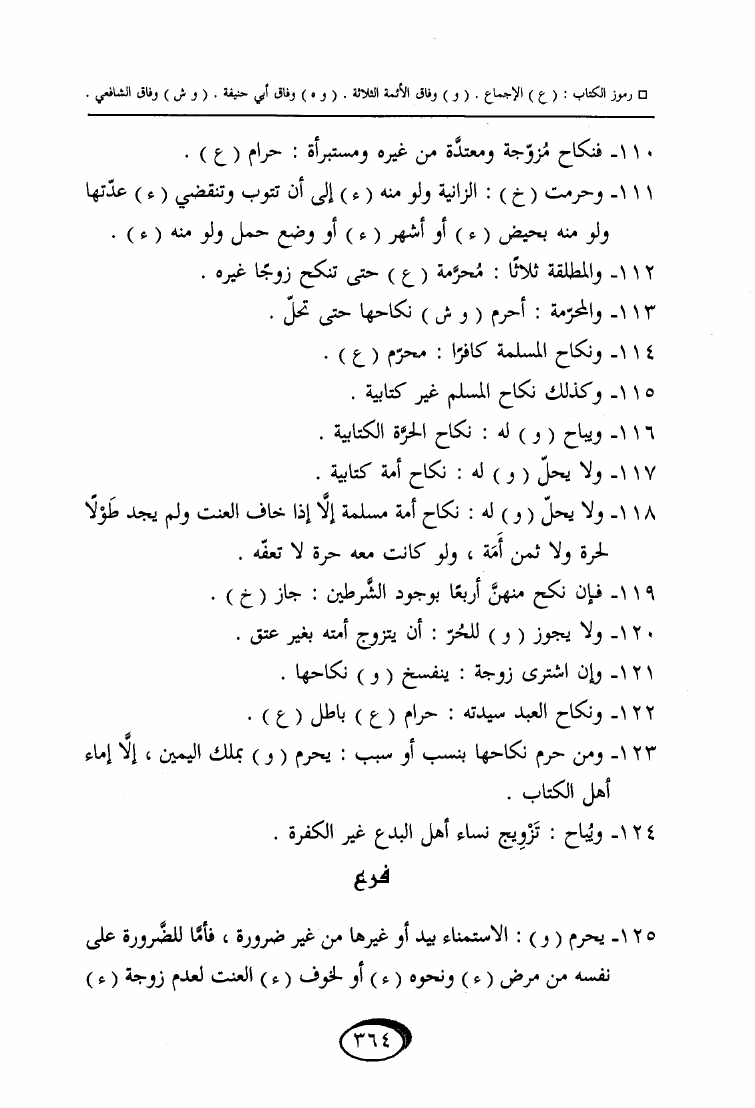 □ رموز الكتاب : ( ع ) الإجماع . ( و ) وفاق الأئمة الثلاثة . ( و ه ) وفاق أبي حنيفة . ( و ش ) وفاق الشافعي .
١١٠ـ فنكاح مُزوّجة ومعتدَّة من غيره ومستبرأة : حرام ( ع ) .
١١١ـ وحرمت ( خ ) : الزانية ولو منه ( ء ) إلى أن تتوب وتنقضي ( ء ) عدّتها
ولو منه بحيض ( ء ) أو أشهر ( ء ) أو وضع حمل ولو منه ( ء ) .
١١٢ـ والمطلقة ثلاثًا : مُحرَّمة ( ع ) حتى تنكح زوجًا غيره .
١١٣ـ والمحرّمة : أحرم ( و ش ) نكاحها حتى تحلّ .
١١٤ـ ونكاح المسلمة كافرًا : محرّم ( ع ) .
١١٥ـ وكذلك نكاح المسلم غير كتابية .
١١٦ـ ويباح ( و ) له : نكاح الحرَّة الكتابية .
١١٧ـ ولا يحلّ ( و ) له : نكاح أمة كتابية .
١١٨ـ ولا يحلّ ( و ) له : نكاح أمة مسلمة إلَّا إذا خاف العنت ولم يجد طَوْلًا
لحرة ولا ثمن أَمَة ، ولو كانت معه حرة لا تعفّه .
١١٩ـ فإن نكح منهنَّ أربعًا بوجود الشَّرطين : جاز ( خ ) .
١٢٠ـ ولا يجوز ( و ) للحُرّ : أن يتزوج أمته بغير عتق .
١٢١ـ وإن اشترى زوجة : ينفسخ ( و ) نكاحها .
١٢٢ـ ونكاح العبد سيدته : حرام ( ع ) باطل ( ع ) .
١٢٣ـ ومن حرم نكاحها بنسب أو سبب : يحرم ( و ) بملك اليمين ، إلَّا إماء
أهل الكتاب .
١٢٤ـ ويُباح : تَزْوِيج نساء أهل البدع غير الكفرة .
فرع
١٢٥ـ يحرم ( و ) : الاستمناء بيد أو غيرها من غير ضرورة ، فأمَّا للضَّرورة على
نفسه من مرض ( ء ) ونحوه ( ء ) أو لخوف ( ء ) العنت لعدم زوجة ( ء )
٣٦٤